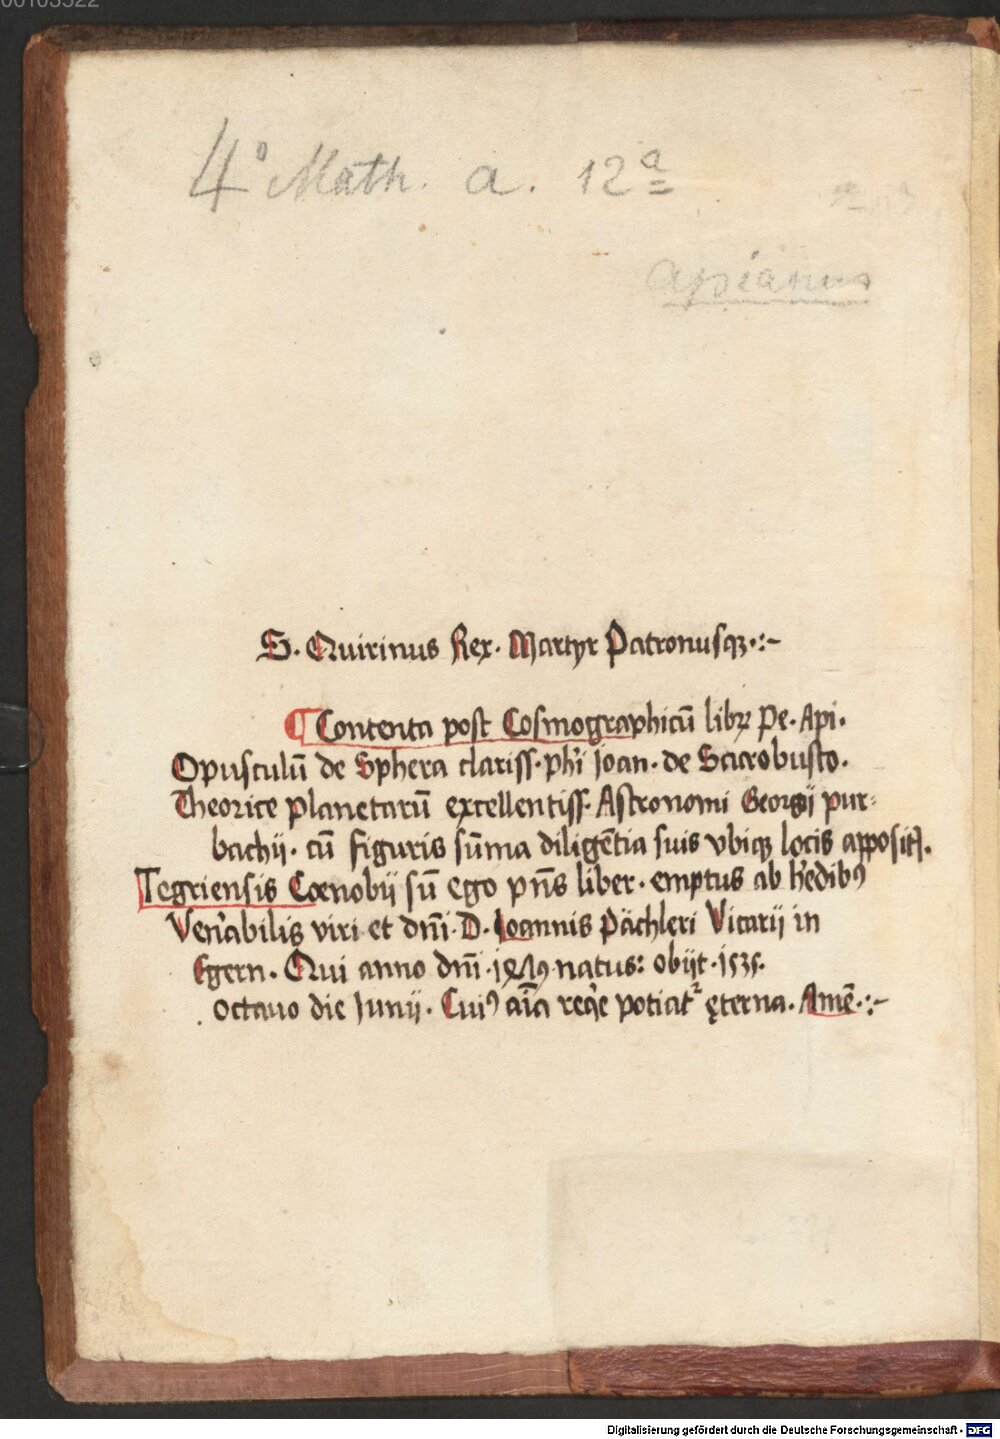 00103522
4° Math. a. 12ª
Appianus
S. Quirinus Rex. Martyr Patronusqꝫ .:~
¶ Contenta post Cosmographicū librꝫ Pe. Api.
Opusculū de Sphera clariss. phi Joan. de Sacrobusto.
Theorice planetarū excellentiss. Astronomi Georgij pur-
bachij. cū figuris sūma diligētia suis vbiqꝫ locis apposit.
Tegriensis Cœnobij sū ego pn̄s liber. emptus ab hedibꝰ
Ven̄abilis viri et dn̄i. D. Joannis Pächleri Vicarij in
Egern. Qui anno dn̄i natus: obijt 1535.
octauo die Junij. Cuiꝰ aīa potiat ęterna. Amē .:~
Digitalisierung gefördert durch die Deutsche Forschungsgemeinschaft - DFG